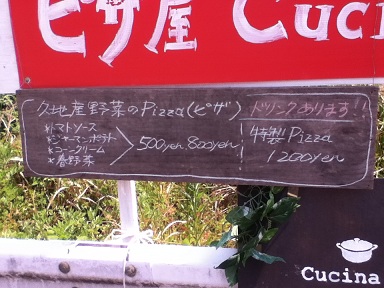 ピザ屋 Cuci
久地産野菜のPizza(ピザ)
*トマトソース
*ジャーマンポテト
*コーンクリーム
*春野菜
500yen 800yen
ドリンクあります!!
特製!! Pizza
1200yen
Cucina